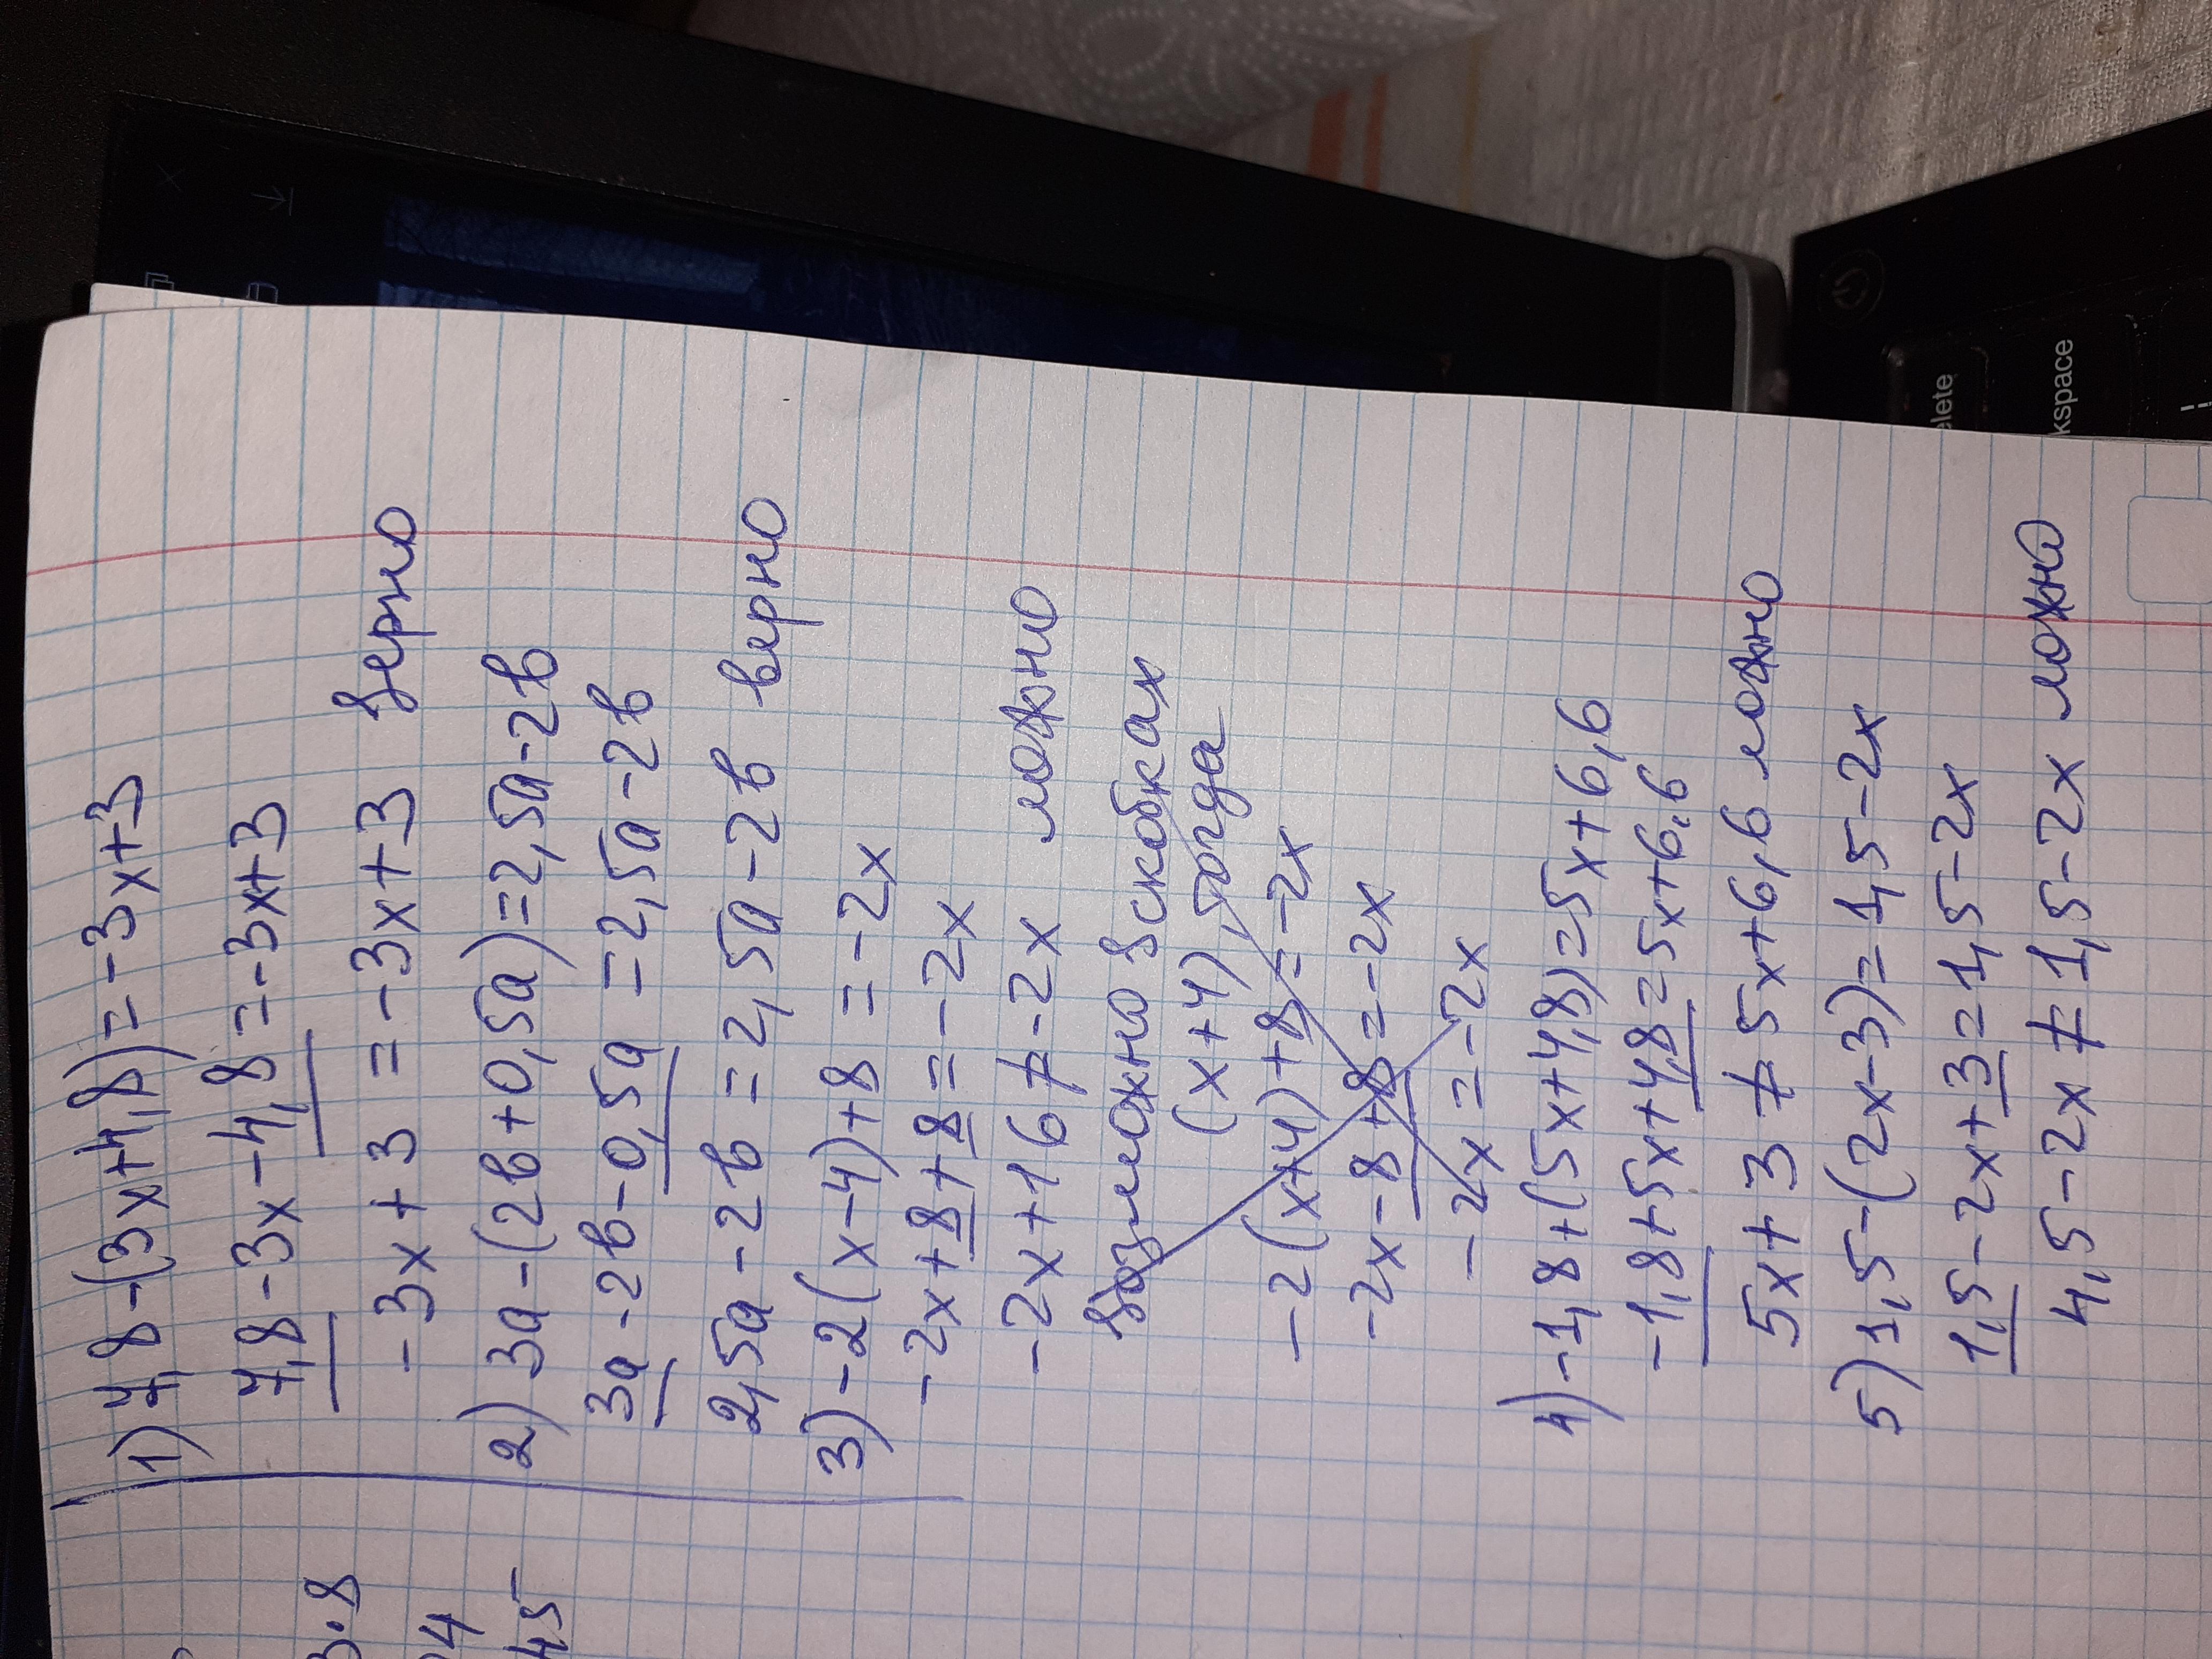 1) 7,8-(3x+4,8)=-3x+3
7,8-3x-4,8=-3x+3
-3x+3=-3x+3 верно
2) 3а-(2в+0,5а)=2,5а-2в
3а-2в-0,5а=2,5а-2в
2,5а-2в=2,5а-2в верно
3) -2(x-4)+8=-2x
-2x+8+8=-2x
-2x+16≠-2x ложно
Возможно в скобках
(x+4), тогда
-2(x+4)+8=-2x
-2x-8+8=-2x
-2x=-2x
4) -1,8+(5x+4,8)=5x+6,6
-1,8+5x+4,8=5x+6,6
5x+3≠5x+6,6 ложно
5) 1,5-(2x-3)=1,5-2x
1,5-2x+3=1,5-2x
4,5-2x≠1,5-2x ложно
3·8
45
elete
kspace